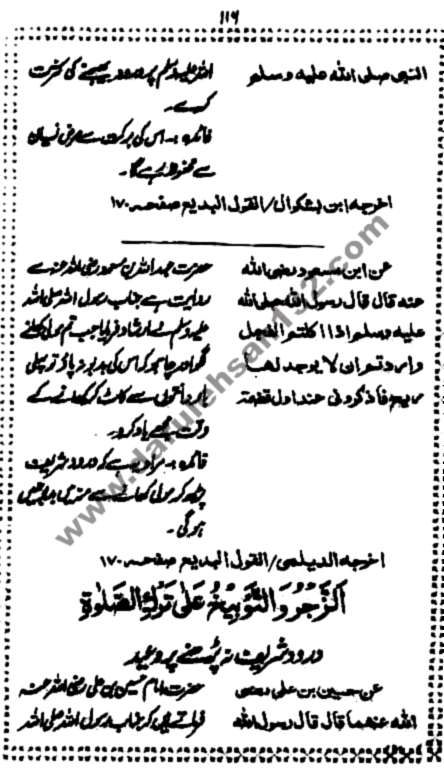 ۱۱۶
النبی صلی الله علیه وسلم
اللہ علیہ وسلم پر درود بھیجنے کی کثرت
کرے۔
فائدہ :۔ اس کی برکت سے مرض نسیان
سے محفوظ رہے گا۔
اخرجه ابن بشکوال / القول البدیع صفحہ ۱۷۰
عن ابن مسعود رضی الله
عنه قال قال رسول الله صلی الله
علیه وسلم اذا اکلتم الفجل
واردتم ان لا یوجد لها
ریح فاذکرونی عند اول قضمة
حضرت عبداللہ بن مسعود رضی اللہ عنہ سے
روایت ہے جناب رسول اللہ صلی اللہ
علیہ وسلم نے ارشاد فرمایا جب تم مولی کھانے
لگو اور چاہو کہ اس کی بدبو نہ پاؤ تو پہلی
بار دانتوں سے کاٹ کر کھانے کے
وقت مجھے یاد کرو۔
فائدہ :۔ مراد یہ ہے کہ درود شریف
پڑھ کر مولی کھانے سے منہ میں بدبو نہیں
ہوگی۔
اخرجه الدیلمی / القول البدیع صفحہ ۱۷۰
اَلزَّجْرُ وَالتَّوْبِیْخُ عَلٰی تَرْكِ الصَّلٰوةِ
درود شریف نہ پڑھنے پر وعید
عن حسین بن علی رضی
الله عنهما قال قال رسول الله
حضرت امام حسین بن علی رضی اللہ عنہ
فرماتے ہیں کہ جناب رسول اللہ صلی اللہ
www.darulehsan152.com